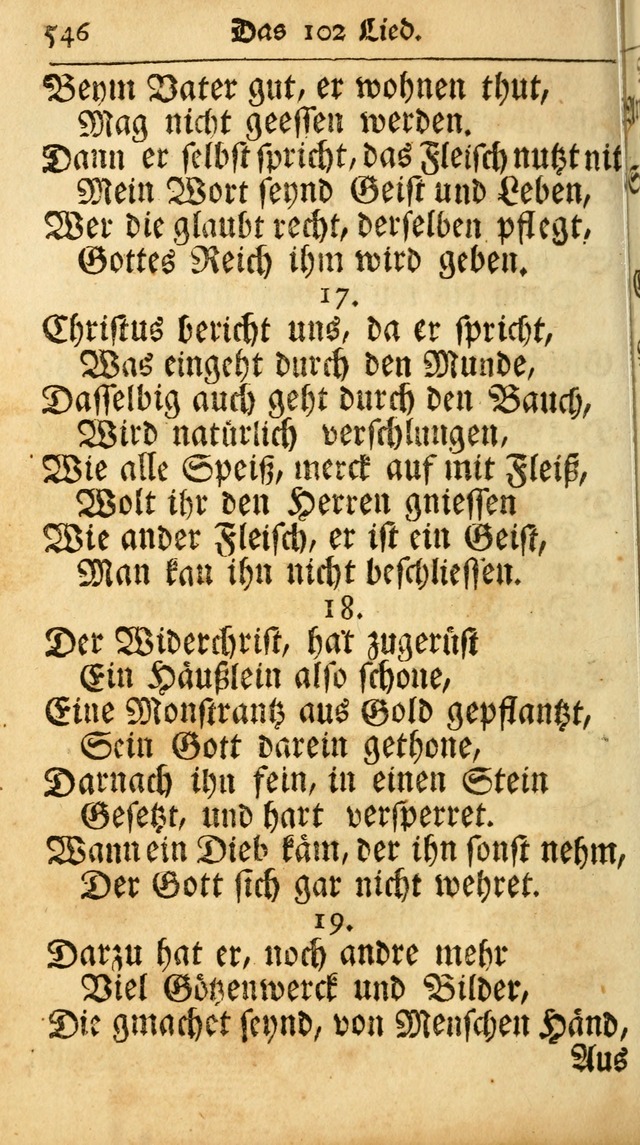 546 Das 102 Lied.
Beym Vater gut, er wohnen thut,
Mag nicht geessen werden.
Dann er selbst spricht, das Fleisch nutzt nit
Mein Wort seynd Geist und Leben,
Wer die glaubt recht, derselben pflegt,
Gottes Reich ihm wird geben.
17.
Christus bericht uns, da er spricht,
Was eingeht durch den Munde,
Dasselbig auch geht durch den Bauch,
Wird natürlich verschlungen,
Wie alle Speiß, merck auf mit Fleiß,
Wolt ihr den Herren gniessen
Wie ander Fleisch, er ist ein Geist,
Man kan ihn nicht beschliessen.
18.
Der Widerchrist, hat zugerüst
Ein Häußlein also schone,
Eine Monstrantz aus Gold gepflantzt,
Sein Gott darein gethone,
Darnach ihn fein, in einen Stein
Gesetzt, und hart versperret.
Wann ein Dieb käm, der ihn sonst nehm,
Der Gott sich gar nicht wehret.
19.
Darzu hat er, noch andre mehr
Viel Götzenwerck und Bilder,
Die gmachet seynd, von Menschen Händ,
Aus